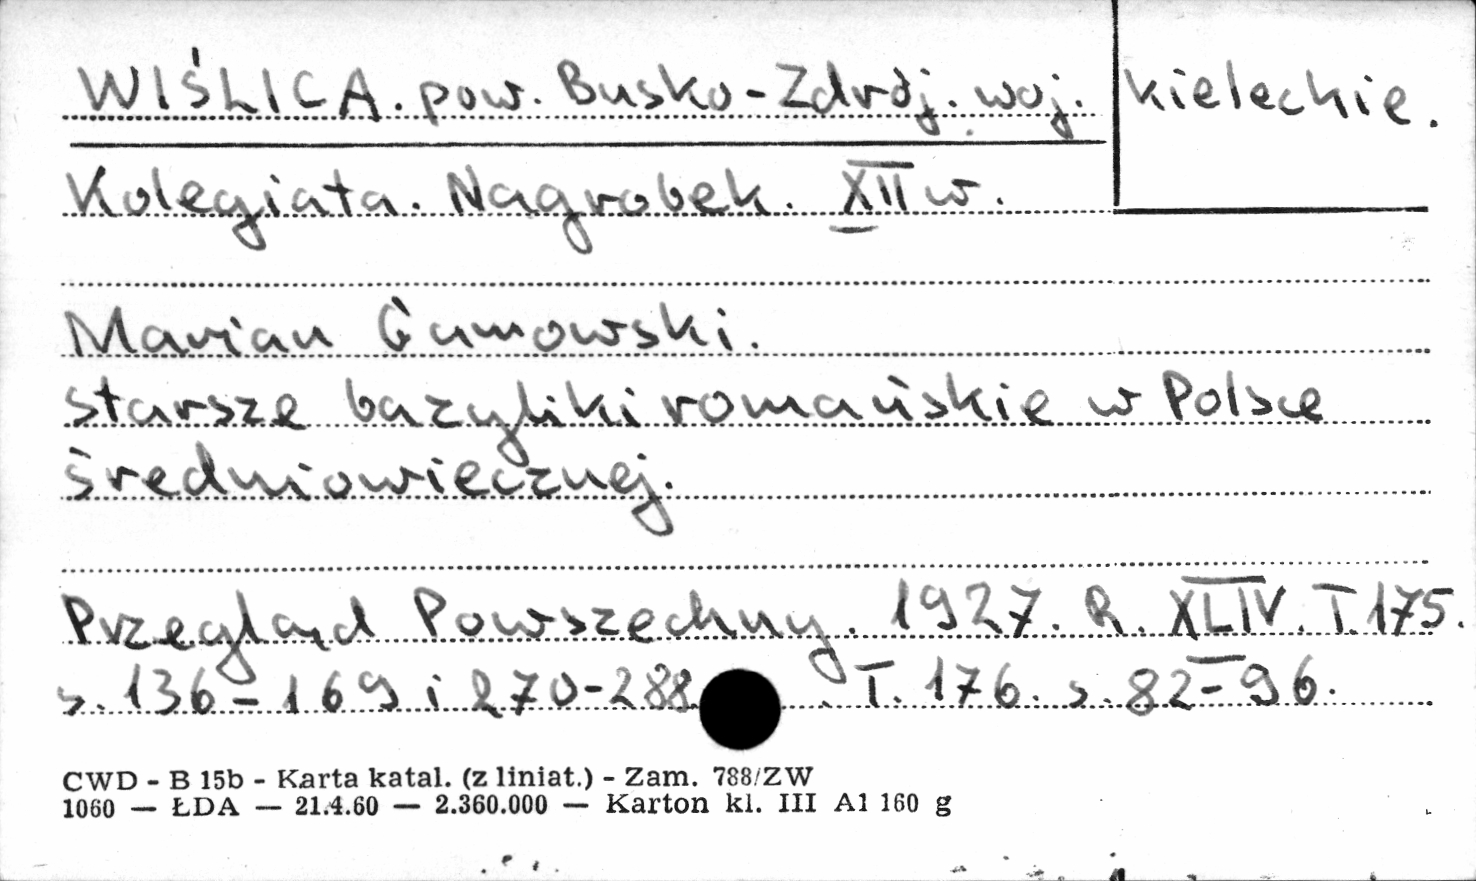 WIŚLICA. pow. Busko-Zdrój. woj. kieleckie.
Kolegiata. Nagrobek. XII w.
Marian Gumowski.
starsze bazyliki romańskie w Polsce
średniowiecznej.
Przegląd Powszechny. 1927. R. XLIV. T. 175.
s. 136-169 i 270-288. T. 176. s. 82-96.
CWD - B 15b - Karta katal. (z liniat.) - Zam. 788/ZW
1060 — ŁDA — 21.4.60 — 2.360.000 — Karton kl. III A1 160 g